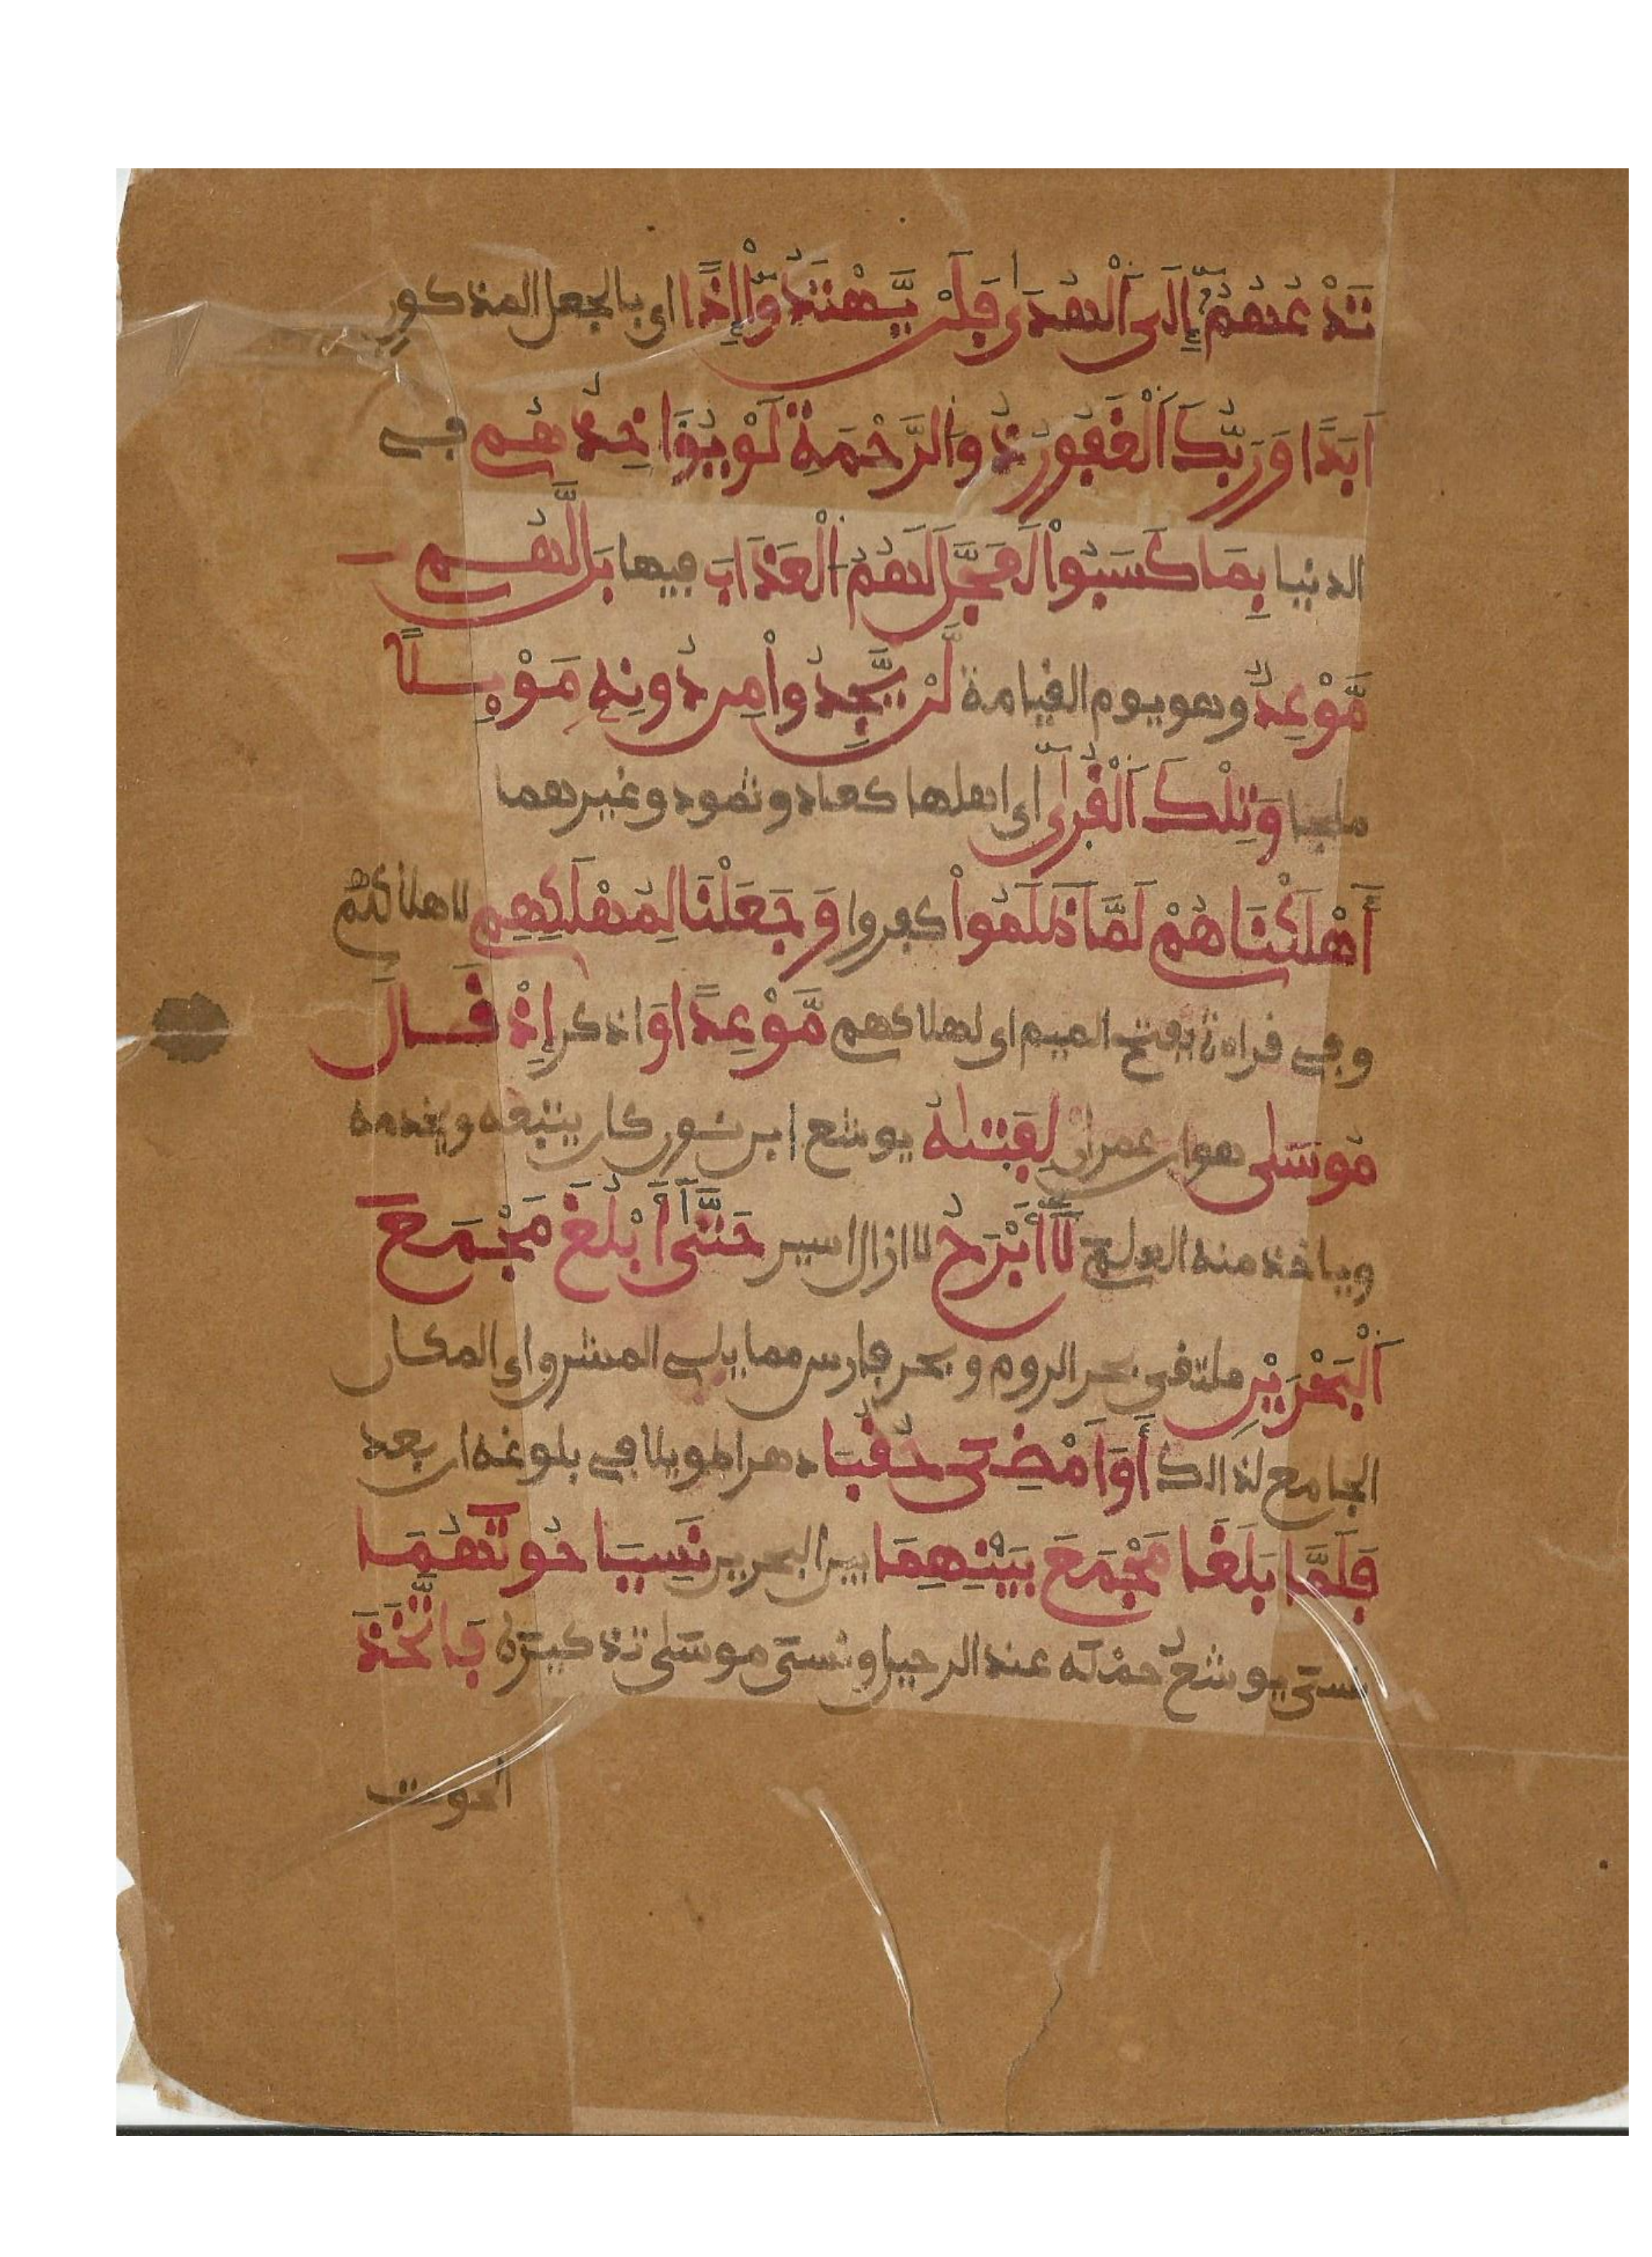 تَدْعُهُمُۥٓ إِلَى اَ۬لْهُدَىٰ فَلَنْ يَّهْتَدُوٓاْ إِذًا اى بالجعل المذكورِ
اَبَدًا وَرَبُّكَ اَ۬لْغَفُورُ ذُو اُ۬لرَّحْمَةِ لَوْ يُؤَاخِذُهُم في
الدنيا بِمَا كَسَبُواْ لَعَجَّلَ لَهُمُ اُ۬لْعَذَابَ فيها بَل لَّهُم
مَّوْعِدٌ وهو يوم القيامة لَّنْ يَّجِدُواْ مِن دُونِهِ مَوْئِلًا
ملجا وَتِلْكَ اَ۬لْقُرٰىٓ اى اهلها كعاد وثمود وغيرهما
أَهْلَكْنَاهُمْ لَمَّا ظَلَمُواْ كفروا وَجَعَلْنَا لِمُهْلَكِهِم لاهلاكهم
وفى قراءة بفتح الميم اى لهلاكهم مَّوْعِدًا وَاذكر إِذْ قَالَ
مُوسَىٰ هو ابن عمران لِفَتىٰهُ يوشع ابن نون كان يتبعه ويخدمه
وياخذ منه العلم لَآ أَبْرَحُ لا ازال اسير حَتَّىٰٓ أَبْلُغَ مَجْمَعَ
اَ۬لْبَحْرَيْنِ ملتقى بحر الروم وبحر فارس مما يلي المشرق اى المكان
الجامع لذالك أَوَ اَمْضِىَ حُقُبًا دهرا طويلا في بلوغه ان بعد
فَلَمَّا بَلَغَا مَجْمَعَ بَيْنِهِمَا بين البحرين نَسِيَا حُوتَهُمَا
نسىَ يوشعُ حمْله عند الرحيل ونسىَ موسَىٰ تذكيرَه فَاتَّخَذَ
الحوت